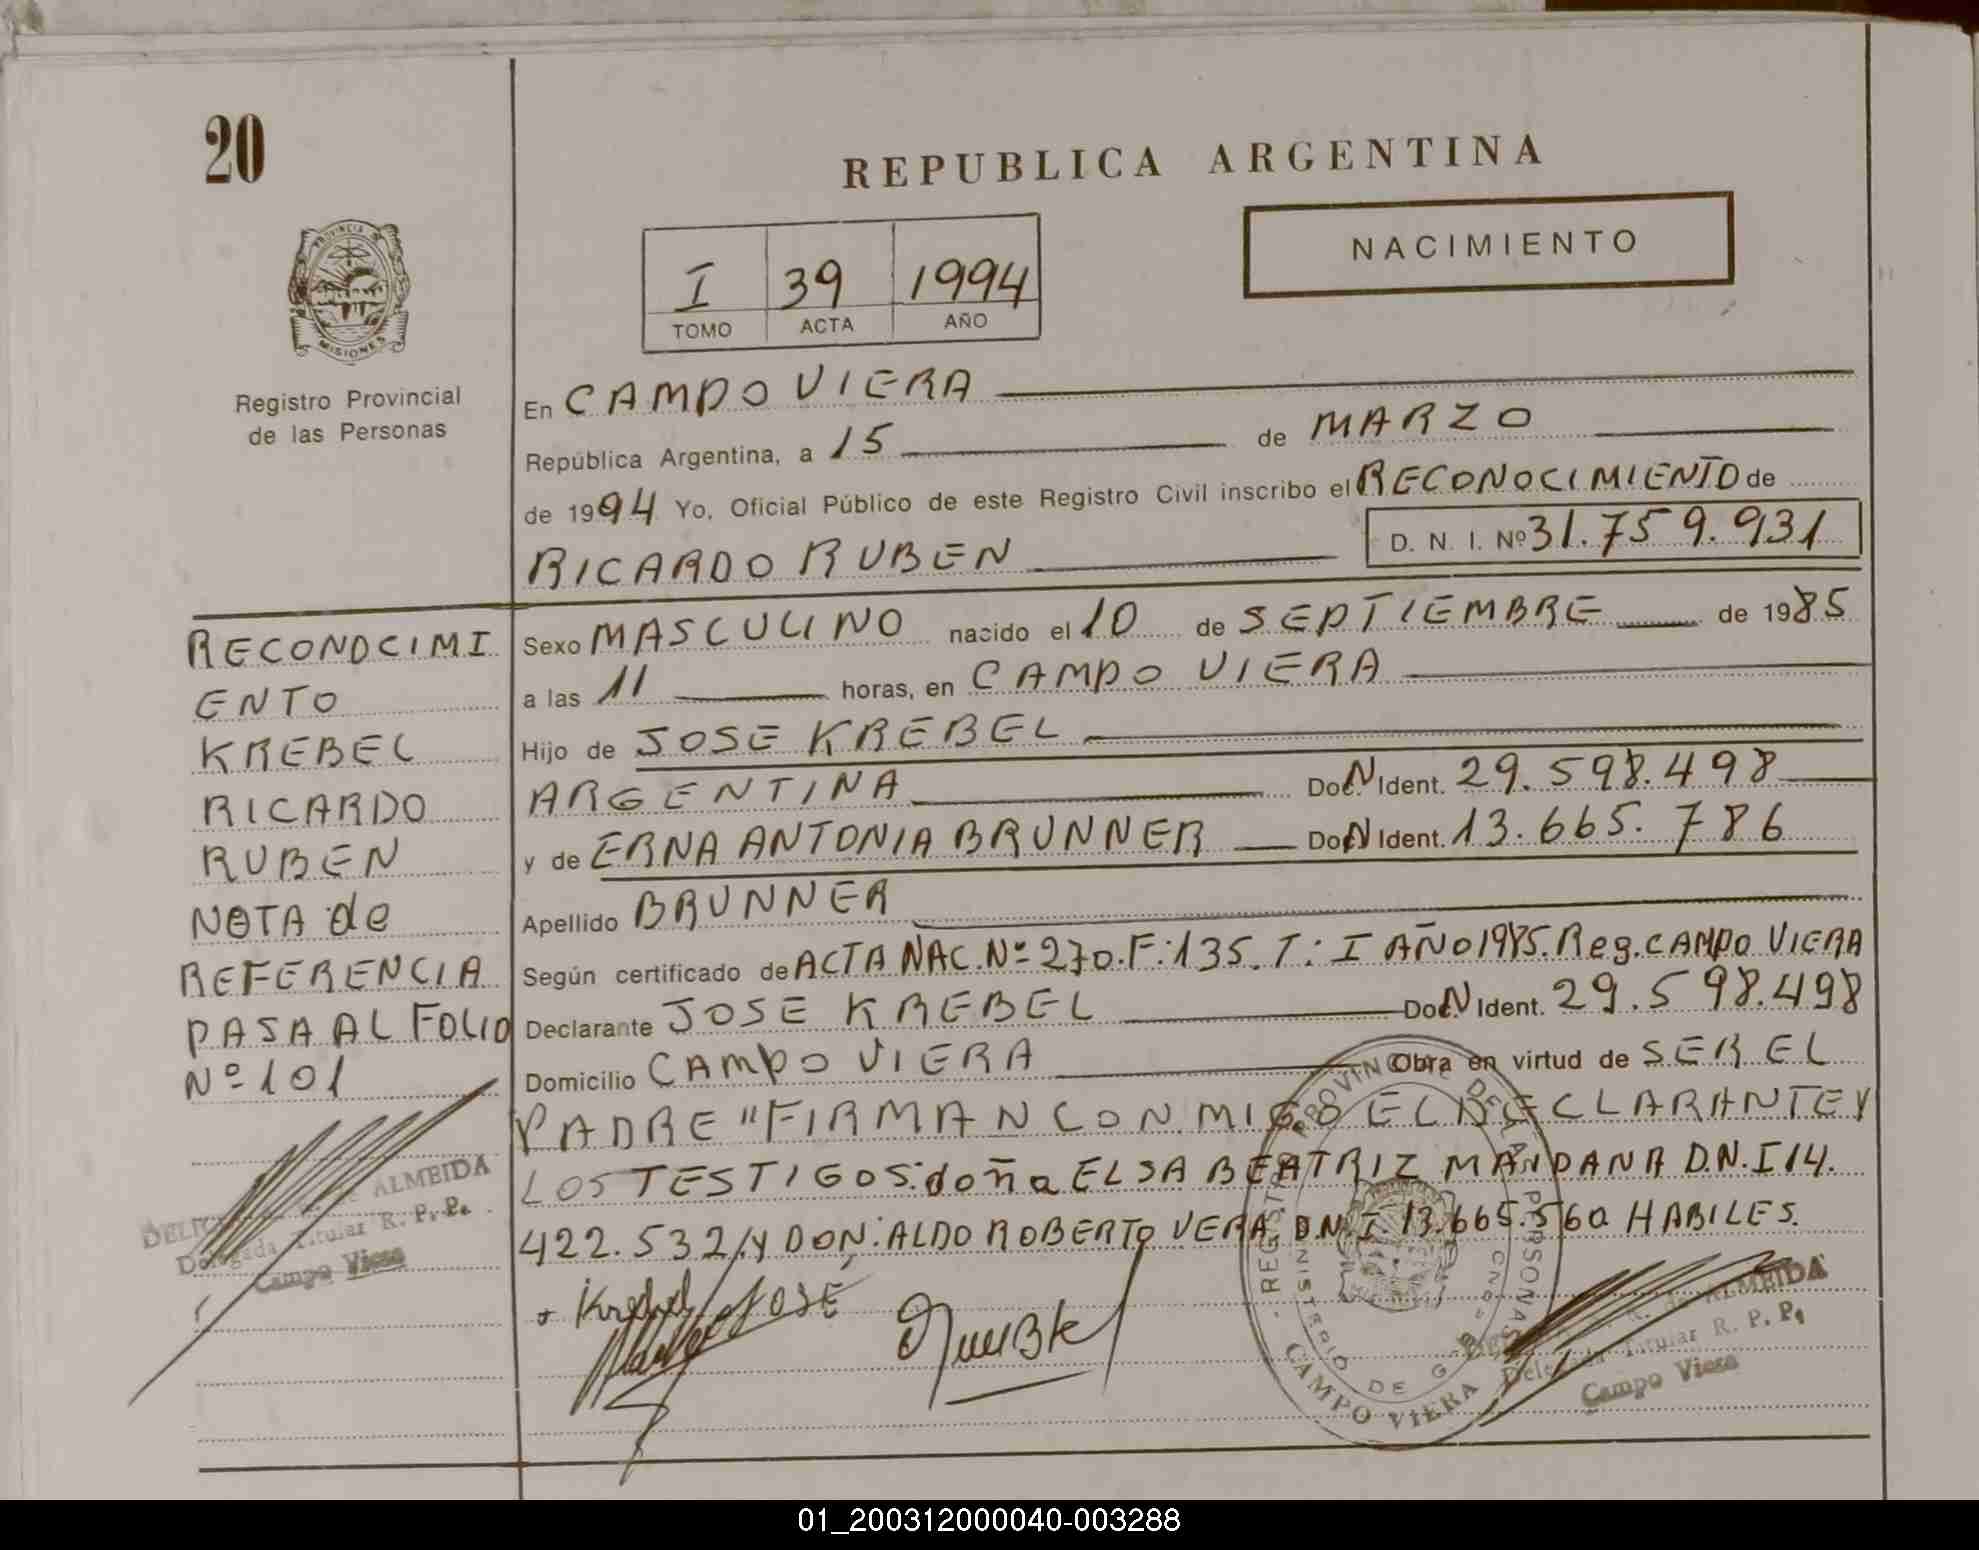 20
REPUBLICA ARGENTINA
NACIMIENTO
I 39 1994
TOMO ACTA AÑO
PROVINCIA DE
MISIONES
Registro Provincial
de las Personas
En CAMPO VIERA
República Argentina, a 15 de MARZO
de 1994 Yo, Oficial Público de este Registro Civil inscribo el RECONOCIMIENTO de
RICARDO RUBEN D. N. I. Nº 31.759.931
Sexo MASCULINO nacido el 10 de SEPTIEMBRE de 1985
a las 11 horas, en CAMPO VIERA
Hijo de JOSE KREBEL
ARGENTINA Doc. N Ident. 29.598.498
y de ERNA ANTONIA BRUNNER Doc. N Ident. 13.665.786
Apellido BRUNNER
Según certificado de ACTA NAC. Nº 270. F: 135. T: I AÑO 1985. Reg. CAMPO VIERA
Declarante JOSE KREBEL Doc. N Ident. 29.598.498
Domicilio CAMPO VIERA Obra en virtud de SER EL
PADRE "FIRMAN CONMIGO EL DECLARANTE Y
LOS TESTIGOS: doña ELSA BEATRIZ MANDANA D.N.I 14.
422.532/Y DON: ALDO ROBERTO VERA D.N.I 13.665.560 HABILES.
RECONOCIMI
ENTO
KREBEL
RICARDO
RUBEN
NOTA de
REFERENCIA
PASA AL FOLIO
Nº 101
ALMEIDA
Delegada Titular R. P. P.
Campo Viera
JOSE
REGISTRO PROVINCIAL DE LAS PERSONAS
MINISTERIO DE
CAMPO VIERA
R. de ALMEIDA
Delegada Titular R. P. P.
Campo Viera
01_200312000040-003288